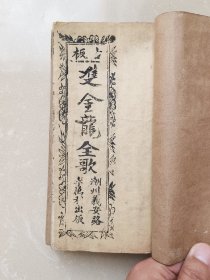 古板
雙金龍全歌
潮州義安路
李萬利出版